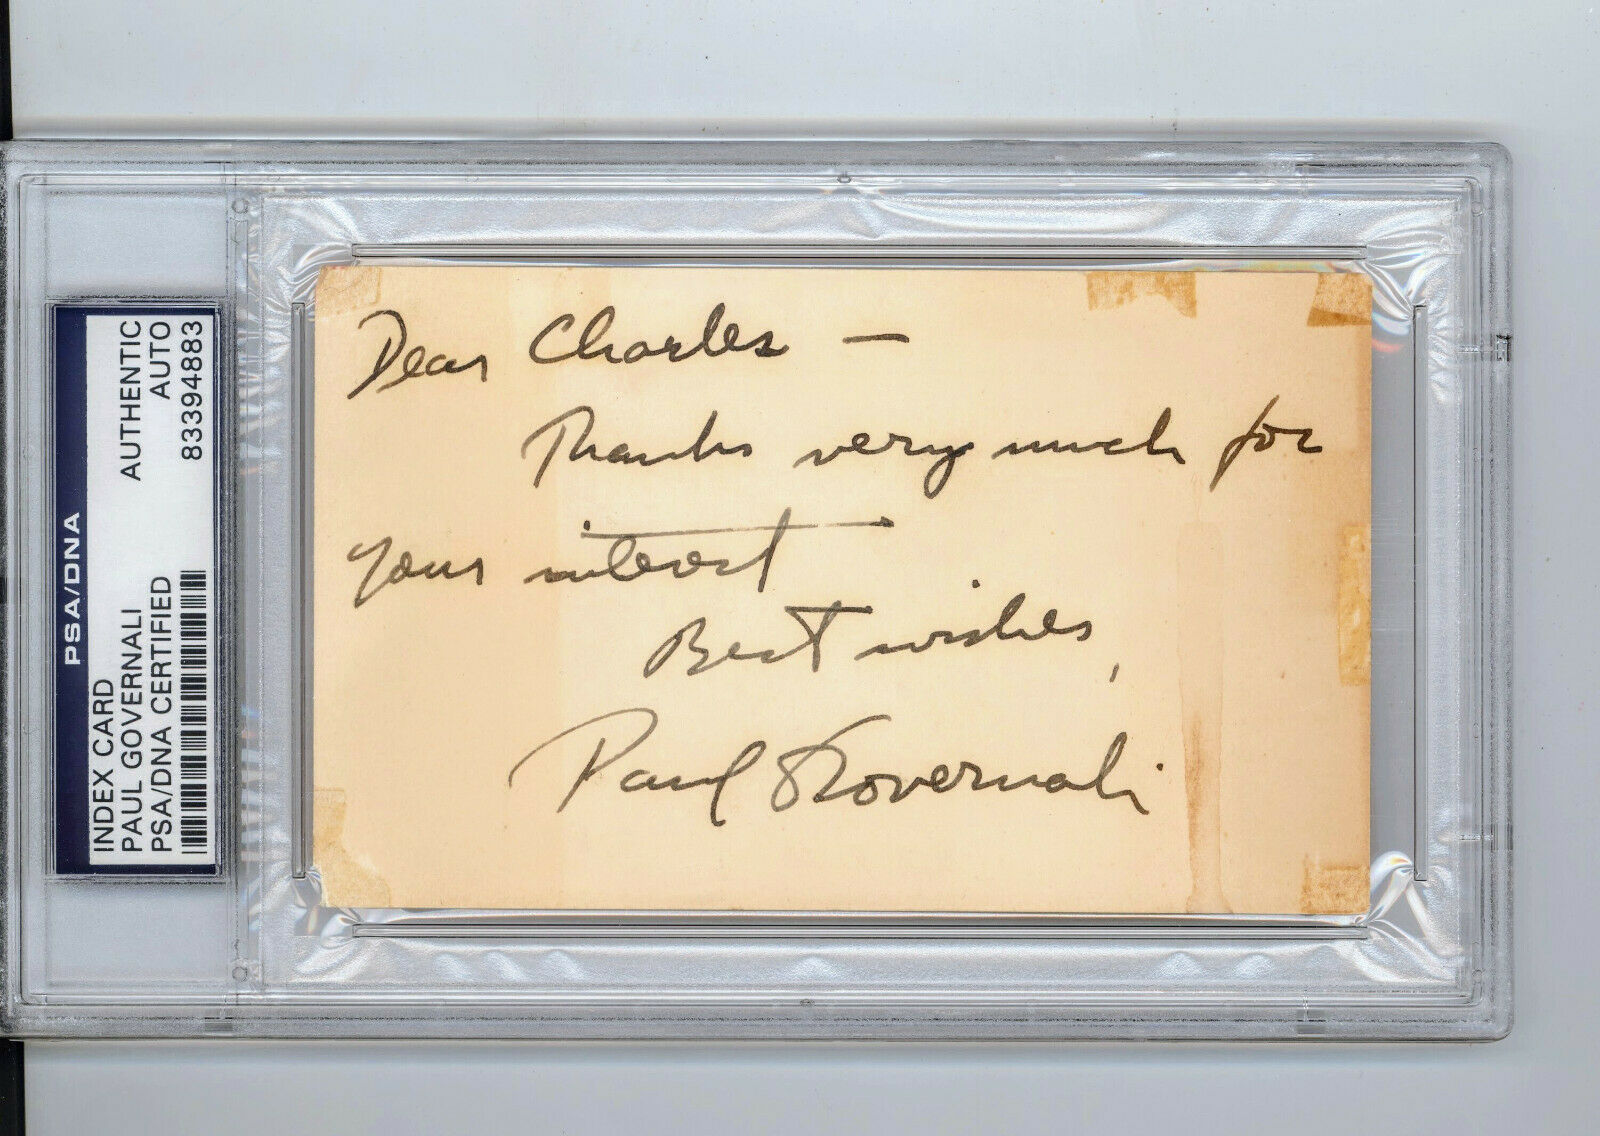 PSA/DNA
INDEX CARD
PAUL GOVERNALI
PSA/DNA CERTIFIED
AUTHENTIC
AUTO
83394883
Dear Charles —
Thanks very much for
your interest
Best wishes,
Paul Governali